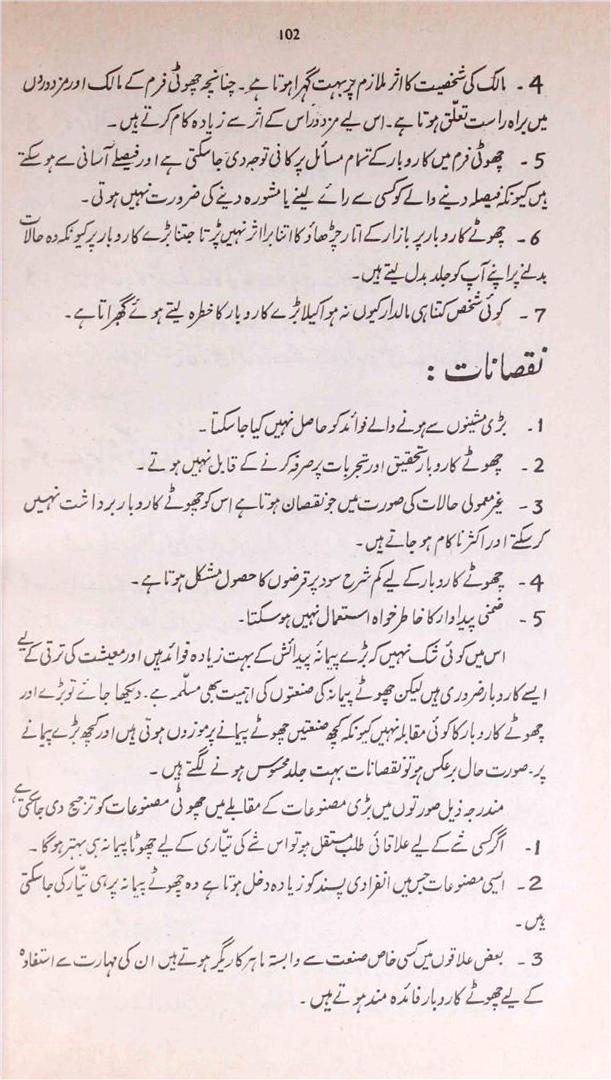 102
4 - مالک کی شخصیت کا اثر ملازم پر بہت گہرا ہوتا ہے۔ چنانچہ چھوٹی فرم کے مالک اور مزدوروں
میں براہ راست تعلّق ہوتا ہے۔ اس لیے مزدور اس کے اثر سے زیادہ کام کرتے ہیں۔
5 - چھوٹی فرم میں کاروبار کے تمام مسائل پر کافی توجہ دی جاسکتی ہے اور فیصلے آسانی سے ہو سکتے
ہیں کیونکہ فیصلہ دینے والے کو کسی سے رائے لینے یا مشورہ دینے کی ضرورت نہیں ہوتی۔
6 - چھوٹے کاروبار پر بازار کے اتار چڑھاؤ کا اتنا برا اثر نہیں پڑتا جتنا بڑے کاروبار پر کیونکہ وہ حالات
بدلنے پر اپنے آپ کو جلد بدل لیتے ہیں۔
7 - کوئی شخص کتنا ہی مالدار کیوں نہ ہو اکیلا بڑے کاروبار کا خطرہ لیتے ہوئے گھبراتا ہے۔
نقصانات :
1- بڑی مشینوں سے ہونے والے فوائد کو حاصل نہیں کیا جاسکتا۔
2 - چھوٹے کاروبار تحقیق اور تجربات پر صرفہ کرنے کے قابل نہیں ہوتے۔
3 - غیر معمولی حالات کی صورت میں جو نقصان ہوتا ہے اس کو چھوٹے کاروبار برداشت نہیں
کرسکتے اور اکثر ناکام ہو جاتے ہیں۔
4 - چھوٹے کاروبار کے لیے کم شرح سود پر قرضوں کا حصول مشکل ہوتا ہے۔
5 - ضمنی پیداوار کا خاطر خواہ استعمال نہیں ہوسکتا۔
اس میں کوئی شک نہیں کہ بڑے پیمانہ پیدائش کے بہت زیادہ فوائد ہیں اور معیشت کی ترقی کے لیے
ایسے کاروبار ضروری ہیں لیکن چھوٹے پیمانہ کی صنعتوں کی اہمیت بھی مسلّمہ ہے۔ دیکھا جائے تو بڑے اور
چھوٹے کاروبار کا کوئی مقابلہ نہیں کیونکہ کچھ صنعتیں چھوٹے پیمانے پر موزوں ہوتی ہیں اور کچھ بڑے پیمانے
پر۔ صورت حال برعکس ہو تو نقصانات بہت جلد محسوس ہونے لگتے ہیں۔
مندرجہ ذیل صورتوں میں بڑی مصنوعات کے مقابلے میں چھوٹی مصنوعات کو ترجیح دی جاسکتی ہے،
1- اگر کسی شے کے لیے علاقائی طلب مستقل ہو تو اس شے کی تیّاری کے لیے چھوٹا پیمانہ ہی بہتر ہوگا۔
2 - ایسی مصنوعات جس میں انفرادی پسند کو زیادہ دخل ہوتا ہے وہ چھوٹے پیمانہ پر ہی تیّار کی جاسکتی
ہیں۔
3 - بعض علاقوں میں کسی خاص صنعت سے وابستہ ماہر کاریگر ہوتے ہیں ان کی مہارت سے استفادہ
کے لیے چھوٹے کاروبار فائدہ مند ہوتے ہیں۔